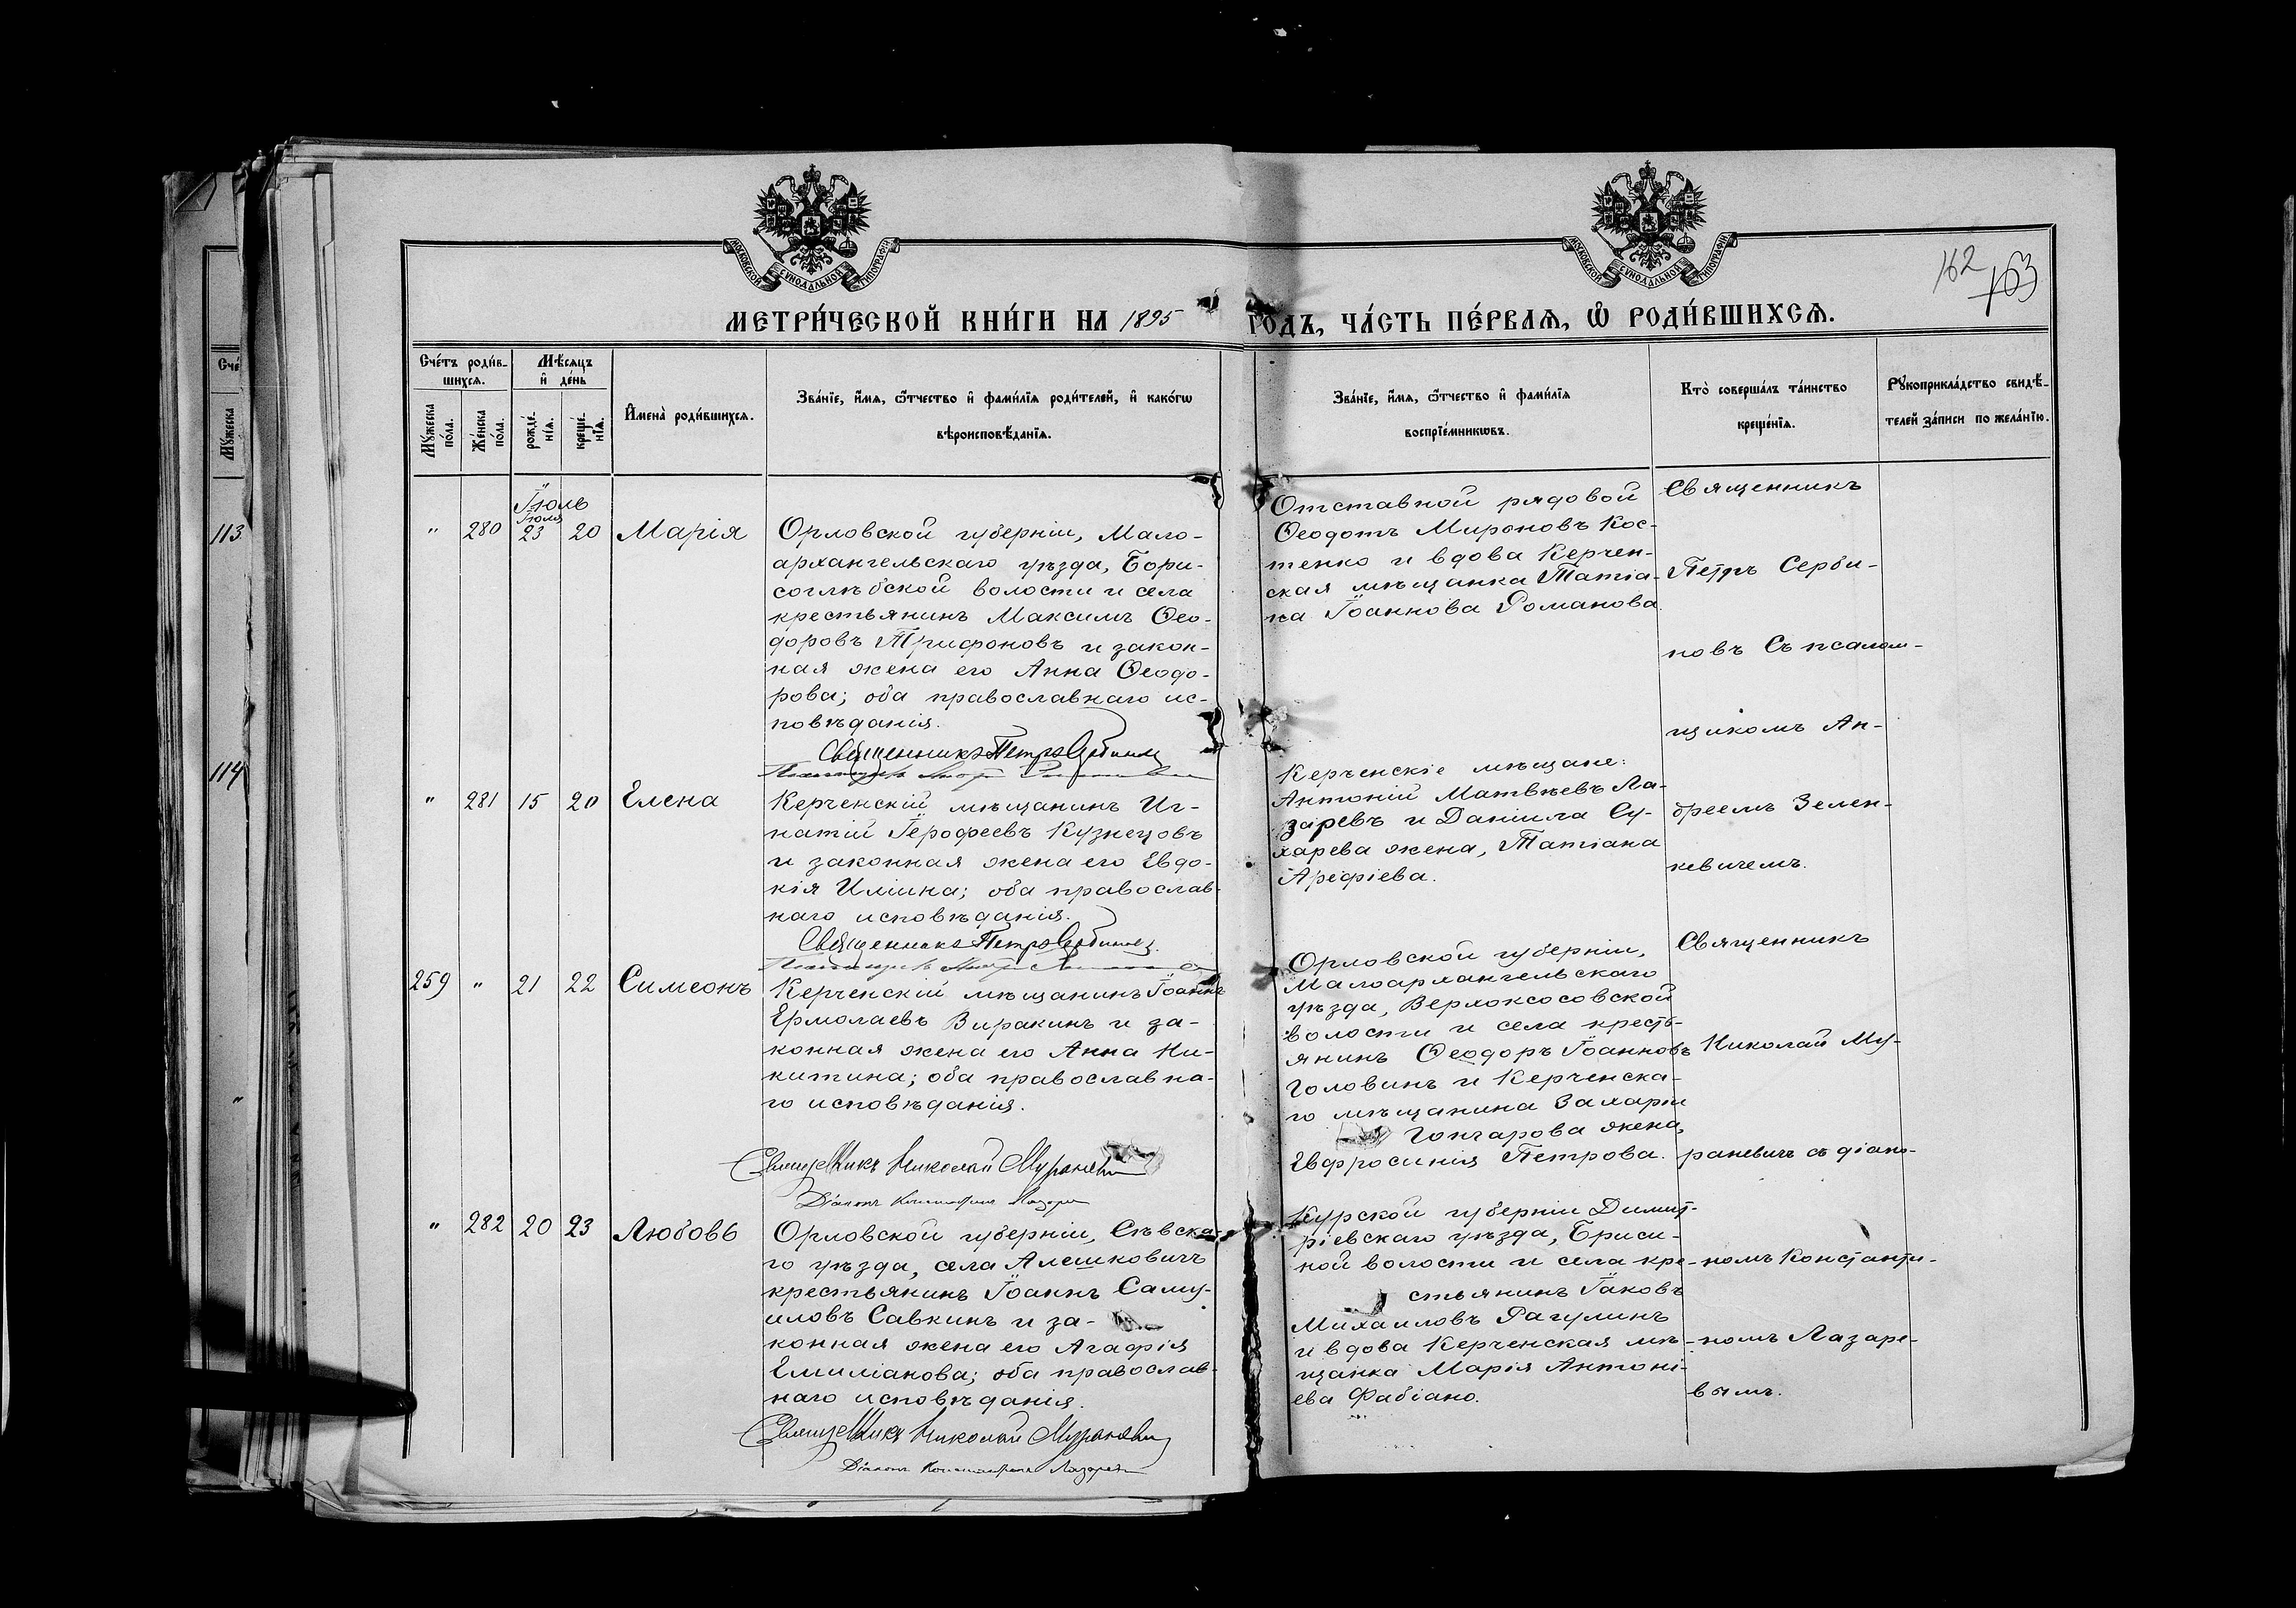 МОСКОВСКОЙ СѴНОДАЛЬНОЙ ТИПОГРАФІИ
МОСКОВСКОЙ СѴНОДАЛЬНОЙ ТИПОГРАФІИ
162
163
МЕТРИ́ЧЕСКОЙ КНИ́ГИ НА 1895 ГОДЪ, ЧА́СТЬ ПЕ́РВАѦ, Ѡ҆ РОДИ́ВШИХСѦ.
Сче́тъ роди́в-
шихсѧ.
Мꙋжеска
по́ла.
Же́нска
по́ла.
Мѣ́сѧцъ
и҆ де́нь
рожде́-
нїѧ.
креще́-
нїѧ.
И҆мена̀ роди́вшихсѧ.
Зва́нїе, и҆́мѧ, ѻ҆́тчество и҆ фами́лїѧ роди́телей, и҆ како́гѡ
вѣроисповѣ́данїѧ.
Зва́нїе, и҆́мѧ, ѻ҆́тчество и҆ фами́лїѧ
воспрїе́мникѡвъ.
Кто̀ соверша́лъ та́инство
креще́нїѧ.
Рꙋкоприкла́дство свидѣ́-
телей за́писи по жела́нїю.
Сче
Мꙋжеска
113
114
"
Іюль
" 280 Іюля 23 20 Марія
Орловской губерніи, Мало-
архангельскаго уѣзда, Бори-
соглѣбской волости и села
крестьянинъ Максимъ Ѳео-
доровъ Трифоновъ и закон-
ная жена его Анна Ѳеодо-
рова; оба православнаго ис-
повѣданія.
Священникъ Петръ Сербиновъ
Отставной рядовой
Ѳеодотъ Мироновъ Кос-
тенко и вдова Керчен-
ская мѣщанка Татіа-
на Іоаннова Романова.
Священникъ
Петръ Серби-
новъ Съ псалом-
щикомъ Ан-
дреемъ Зелен-
кевичемъ.
" 281 15 20 Елена
Керченскій мѣщанинъ Иг-
натій Іерофеевъ Кузнецовъ
и законная жена его Евдо-
кія Иліина; оба православ-
наго исповѣданія.
Священникъ Петръ Сербиновъ
Керченскіе мѣщане:
Антоній Матвѣевъ Ла-
заревъ и Даніила Су-
харева жена, Татіана
Арефіева.
259 " 21 22 Симеонъ
Керченскій мѣщанинъ Іоаннъ
Ермолаевъ Виракинъ и за-
конная жена его Анна Ни-
китина; оба православна-
го исповѣданія.
Священникъ Николай Мураневичъ
Діаконъ Константинъ Лазаревъ
Орловской губерніи,
Малоархангельскаго
уѣзда, Верхоксосовской
волости и села кресть-
янинъ Ѳеодоръ Іоанновъ
Головинъ и Керченска-
го мѣщанина Захаріи
Гончарова жена,
Евфросинія Петрова.
Священникъ
Николай Му-
раневичъ съ діако-
номъ Константи-
номъ Лазаре-
вымъ.
" 282 20 23 Любовь
Орловской губерніи, Сѣвска-
го уѣзда, села Алешковичъ
крестьянинъ Іоаннъ Саму-
иловъ Савкинъ и за-
конная жена его Агафія
Емиліанова; оба православ-
наго исповѣданія.
Священникъ Николай Мураневичъ
Діаконъ Константинъ Лазаревъ
Курской губерніи Димит-
ріевскаго уѣзда, Ериси-
ной волости и села кре-
стьянинъ Іаковъ
Михаиловъ Рагулинъ
и вдова Керченская мѣ-
щанка Марія Антоні-
ева Фабіано.